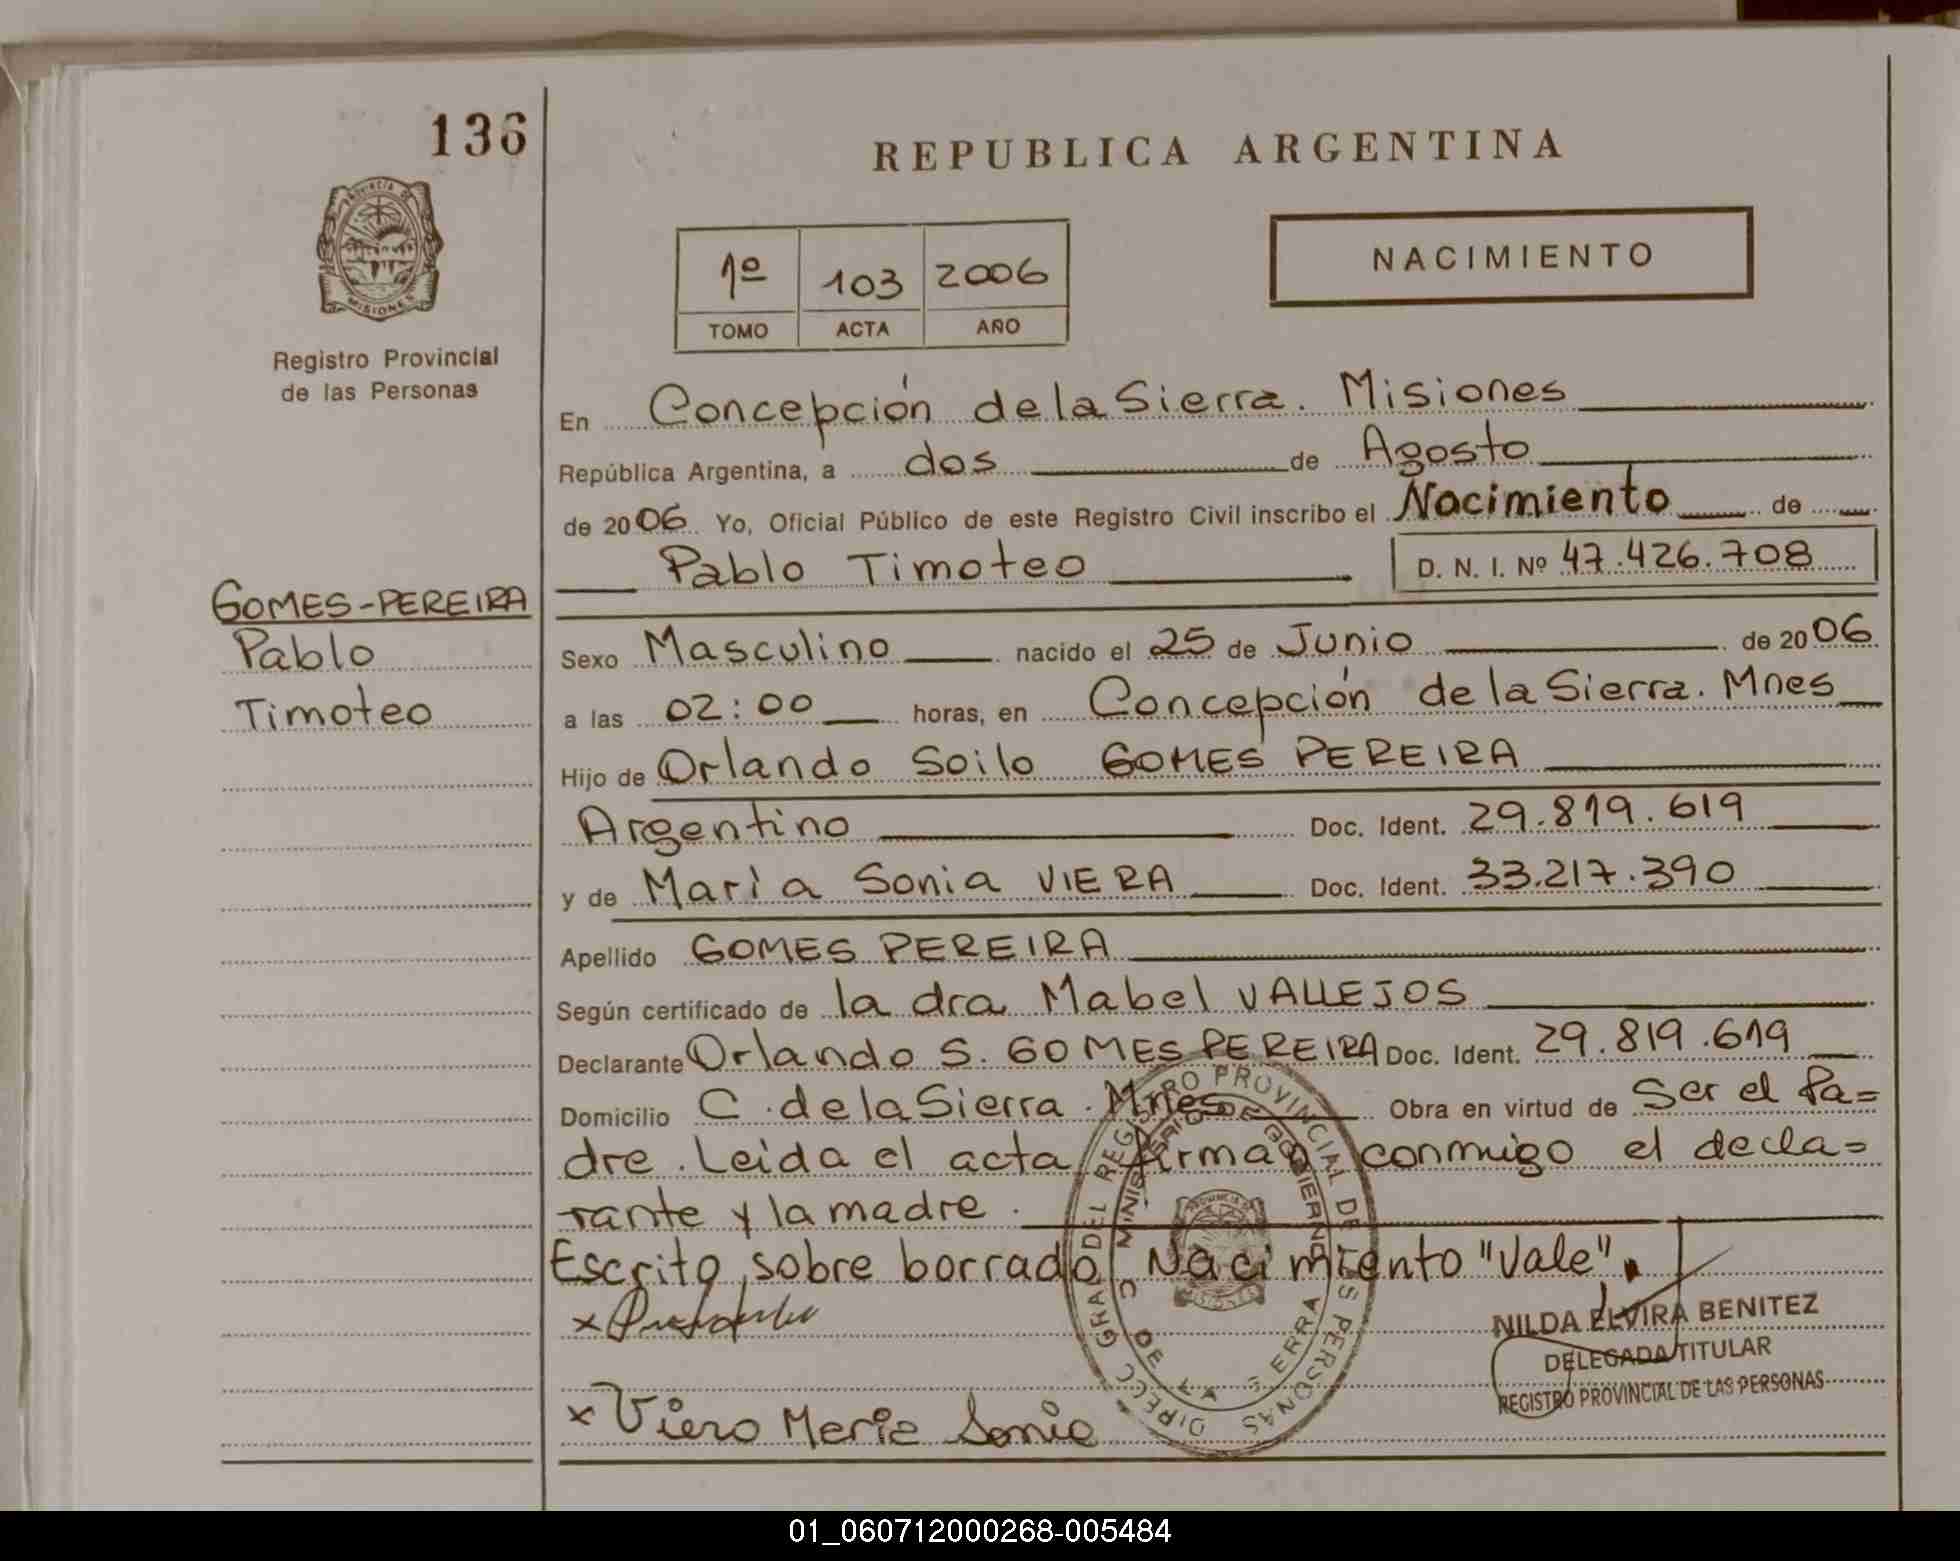 136
REPUBLICA ARGENTINA
NACIMIENTO
1º 103 2006
TOMO ACTA AÑO
PROVINCIA DE
MISIONES
Registro Provincial
de las Personas
En Concepción de la Sierra. Misiones
República Argentina, a dos de Agosto
de 2006 Yo, Oficial Público de este Registro Civil inscribo el Nacimiento de
Pablo Timoteo D. N. I. Nº 47.426.708
GOMES-PEREIRA
Pablo
Timoteo
Sexo Masculino nacido el 25 de Junio de 2006
a las 02:00 horas, en Concepción de la Sierra. Mnes
Hijo de Orlando Soilo GOMES PEREIRA
Argentino Doc. Ident. 29.819.619
y de María Sonia VIERA Doc. Ident. 33.217.390
Apellido GOMES PEREIRA
Según certificado de la dra Mabel VALLEJOS
Declarante Orlando S. GOMES PEREIRA Doc. Ident. 29.819.619
Domicilio C. de la Sierra. Mnes Obra en virtud de Ser el Pa=
dre. Leida el acta firman conmigo el decla=
rante y la madre.
Escrito sobre borrado Nacimiento "Vale".
NILDA ELVIRA BENITEZ
DELEGADA TITULAR
REGISTRO PROVINCIAL DE LAS PERSONAS
x
x Viera Maria Sonia
DIRECC GRAL DEL REGISTRO PROVINCIAL DE LAS PERSONAS
MINISTERIO DE GOBIERNO
C DE LA SIERRA
01_060712000268-005484